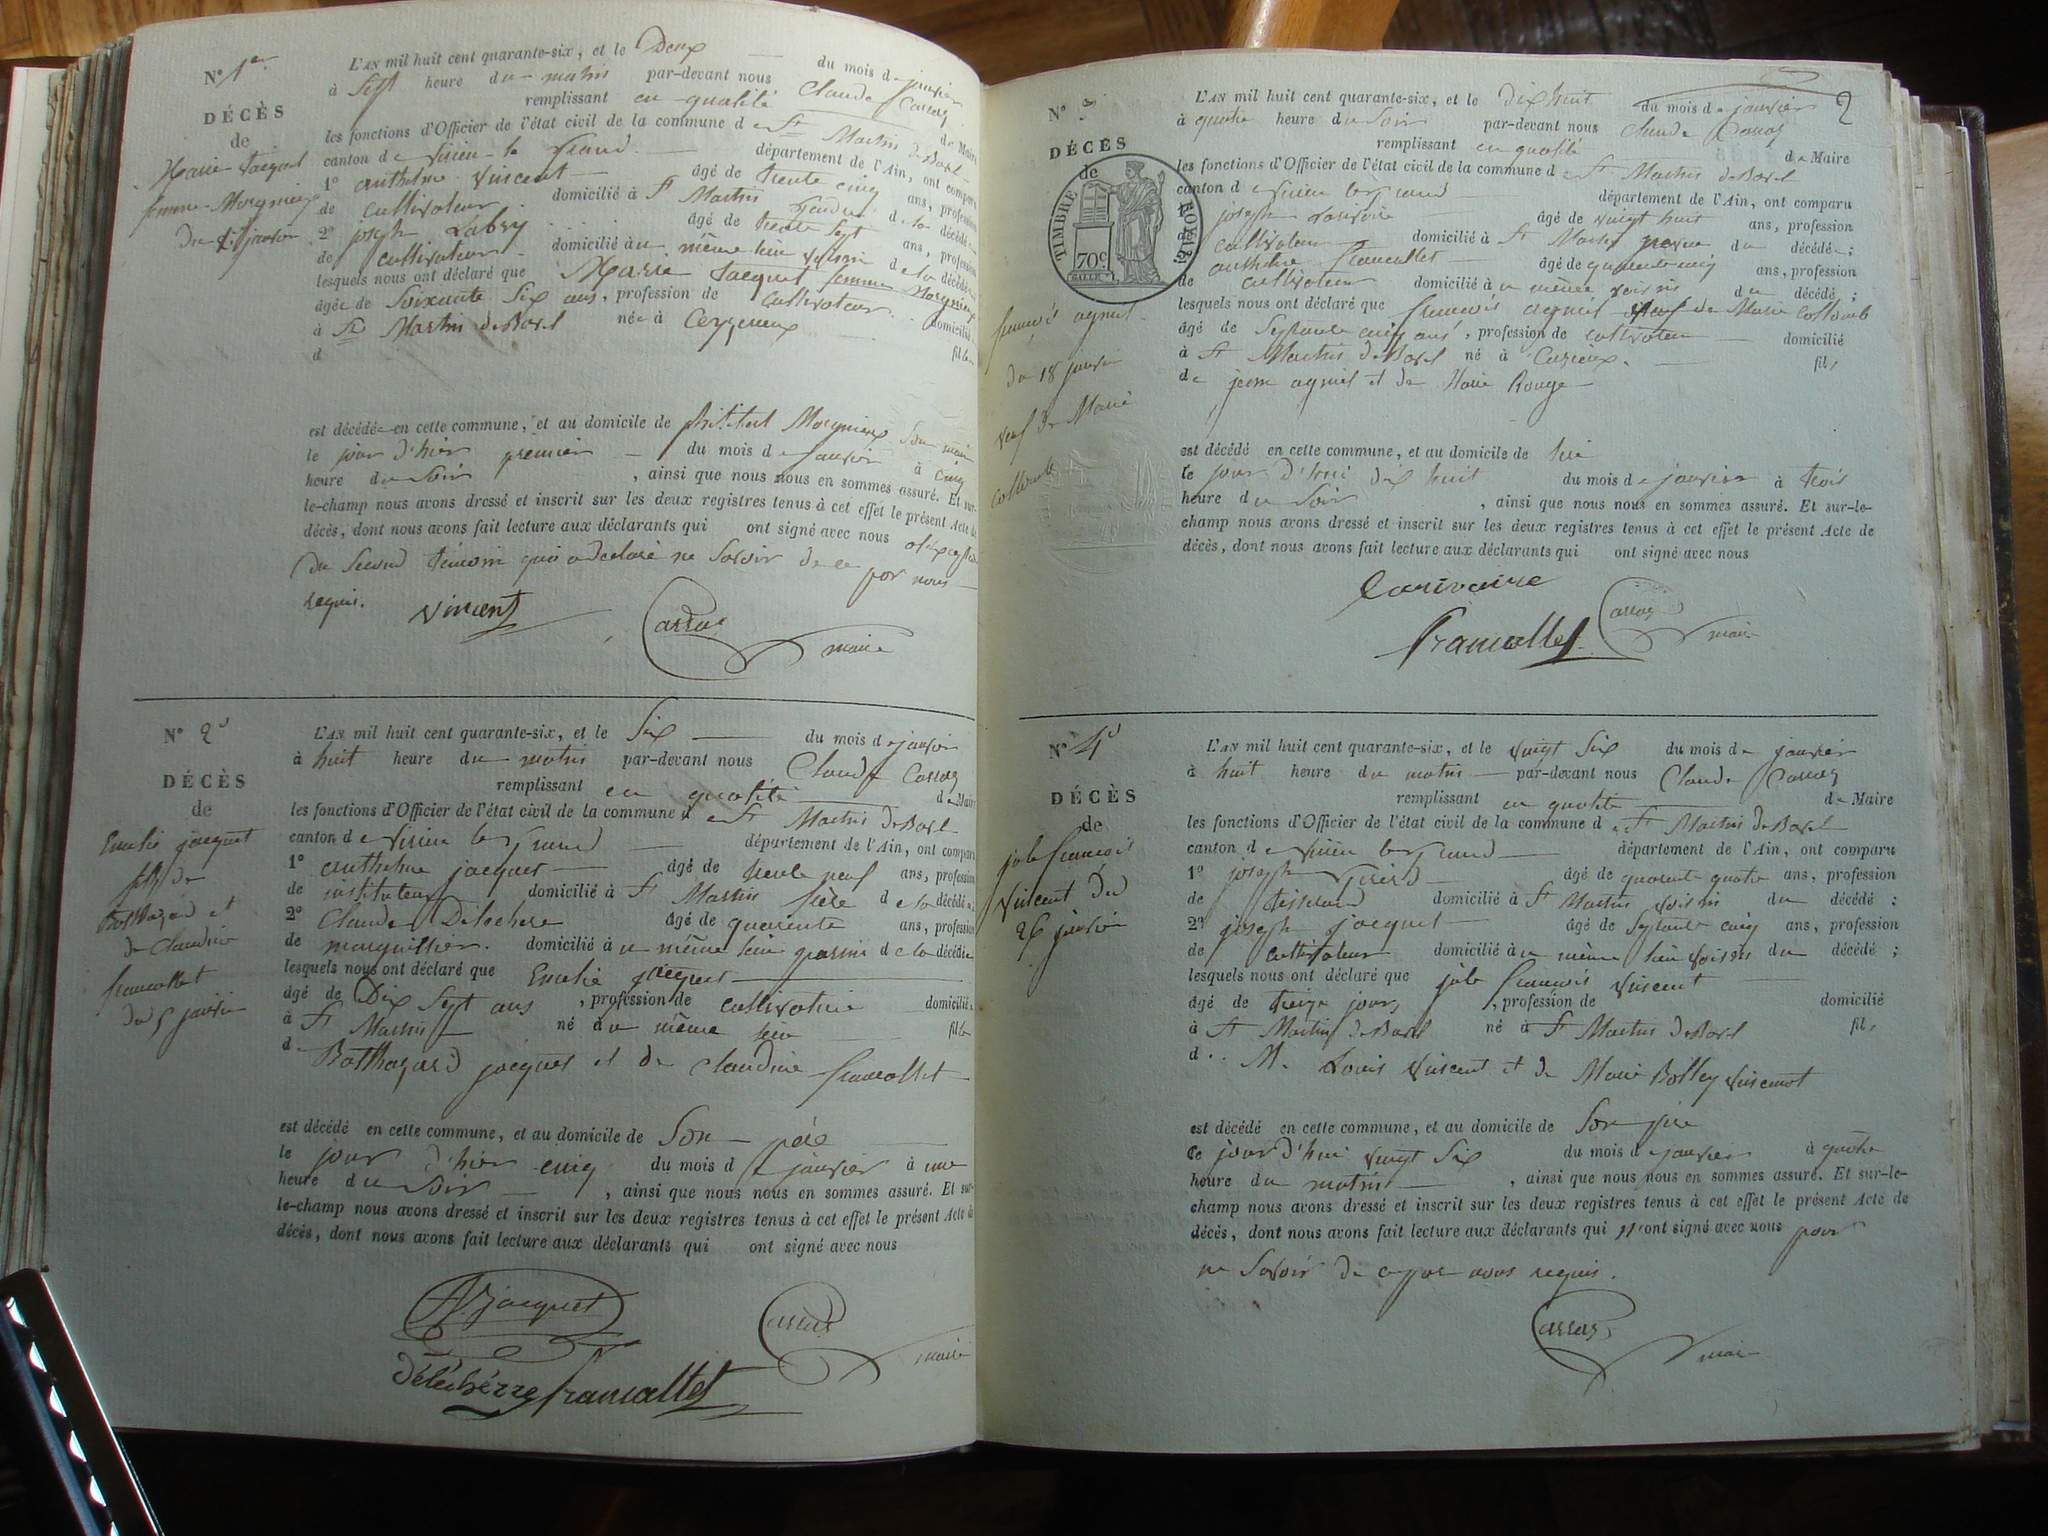 N° 1er
DÉCÈS
de
Marie Jacquet
femme Morgnieux
du 1er janvier
L'AN mil huit cent quarante-six, et le Deux du mois de janvier
à Sept heure du matin par-devant nous Claude Carraz
remplissant en qualité de Maire
les fonctions d'Officier de l'état civil de la commune de St Martin de Bavel
canton de Virieu le Grand département de l'Ain, ont comparu
1° anthelme Vincent âgé de trente cinq ans, profession
de cultivateur domicilié à St Martin gendre de la décédée
2° joseph Labry âgé de trente sept ans, profession
de cultivateur domicilié au même lieu voisin de la décédée
lesquels nous ont déclaré que Marie Jacquet femme Morgnieux
âgée de Soixante Six ans, profession de cultivateur domicilié
à St Martin de Bavel née à Ceyzerieux fille
d
est décédée en cette commune, et au domicile de Philibert Morgnieux Son mari
le jour d'hier premier du mois de janvier à cinq
heure du Soir , ainsi que nous nous en sommes assuré. Et sur-
le-champ nous avons dressé et inscrit sur les deux registres tenus à cet effet le présent Acte de
décès, dont nous avons fait lecture aux déclarants qui ont signé avec nous
du Second témoin qui a declaré ne Savoir de ce par nous
requis.
Vincent Carraz maire
N° 2e
DÉCÈS
de
Emelie jacquet
fille de
Balthazard et
de Claudine
francollet
du 5 janvier
L'AN mil huit cent quarante-six, et le Six du mois de janvier
à huit heure du matin par-devant nous Claude Carraz
remplissant en qualité de Maire
les fonctions d'Officier de l'état civil de la commune de St Martin de Bavel
canton de Virieu le Grand département de l'Ain, ont comparu
1° anthelme jacquet âgé de trente neuf ans, profession
de instituteur domicilié à St Martin frère de la décédée
2° Claude Délechere âgé de quarente ans, profession
de marguillier. domicilié au même lieu de la décédée
lesquels nous ont déclaré que Emelie jacquet
âgé de Dix Sept ans , profession de cultivatrice domicilié
à St Martin né au même lieu fille
d Balthazard jacquet et de Claudine francollet
est décédé en cette commune, et au domicile de Son père
le jour d'hier cinq du mois de janvier à une
heure du Soir , ainsi que nous nous en sommes assuré. Et sur-
le-champ nous avons dressé et inscrit sur les deux registres tenus à cet effet le présent Acte de
décès, dont nous avons fait lecture aux déclarants qui ont signé avec nous
A. jacquet Carraz maire
Délechérre francollet
2
N° 3
DÉCÈS
de
TIMBRE ROYAL
70c
françois agnil
du 18 janvier
veuf de Marie
collomb
L'AN mil huit cent quarante-six, et le dix huit du mois de janvier
à quatre heure du Soir par-devant nous Claude Carraz
remplissant en qualité de Maire
les fonctions d'Officier de l'état civil de la commune de St Martin de Bavel
canton de Virieu le Grand département de l'Ain, ont comparu
joseph Larivoire âgé de vingt huit ans, profession
de cultivateur domicilié à St Martin du décédé;
anthelme francollet âgé de quarante cinq ans, profession
de cultivateur domicilié au même voisin du décédé;
lesquels nous ont déclaré que françois agnil veuf de Marie Collomb
âgé de Septante cinq ans, profession de cultivateur domicilié
à St Martin de Bavel né à Cuzieux. fils
de agnil et de Marie Rouge
est décédé en cette commune, et au domicile de lui
le jour d'hui dix huit du mois de janvier à trois
heure du Soir , ainsi que nous nous en sommes assuré. Et sur-le-
champ nous avons dressé et inscrit sur les deux registres tenus à cet effet le présent Acte de
décès, dont nous avons fait lecture aux déclarants qui ont signé avec nous
Larivoire Carraz maire
francollet
N° 4e
DÉCÈS
de
jule françois
Vincent du
26 janvier
L'AN mil huit cent quarante-six, et le vingt Six du mois de janvier
à huit heure du matin par-devant nous Claude Carraz
remplissant en qualité de Maire
les fonctions d'Officier de l'état civil de la commune de St Martin de Bavel
canton de Virieu le Grand département de l'Ain, ont comparu
1° joseph Girerd âgé de quarant quatre ans, profession
de tisserand domicilié à St Martin voisin du décédé;
2° joseph jacquet âgé de Septante cinq ans, profession
de cultivateur domicilié au même lieu voisin du décédé;
lesquels nous ont déclaré que jule françois Vincent
âgé de treize jours , profession de domicilié
à St Martin de Bavel né à St Martin de Bavel fils
d M. Louis Vincent et de Marie Bolley Vincent
est décédé en cette commune, et au domicile de Son père
le jour d'hui vingt Six du mois de janvier à quatre
heure du matin , ainsi que nous nous en sommes assuré. Et sur-le-
champ nous avons dressé et inscrit sur les deux registres tenus à cet effet le présent Acte de
décès, dont nous avons fait lecture aux déclarants qui n'ont signé avec nous pour
ne Savoir de ce par nous requis.
Carraz maire